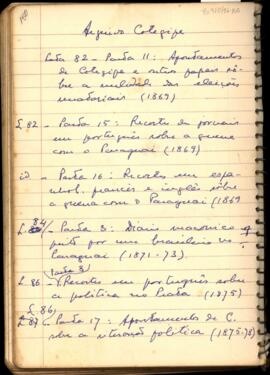 Arquivo Cotegipe
Lata 82 - Pasta 11: Apontamentos
de Cotegipe e outros papeis sô-
bre a das eleições
senatoriais (1869)
L. 82 - Pasta 15: Recorte de jornais
em português sobre a guerra
com o Paraguai (1869)
id - Pasta 16: Recortes em espa-
nhol, francês e inglês sôbre
a guerra com o Paraguai (1869
L. 84 - Pasta 3: Diario maçonico
feito por um brasileiro no
Paraguai (1871-73).
Pasta 3
L. 86 - Recortes em português sobre
a politica no Prata (1875)
L. 86,
L. 87 - Pasta 17: Apontamentos de C.
sbre a situação politica (1875-78)